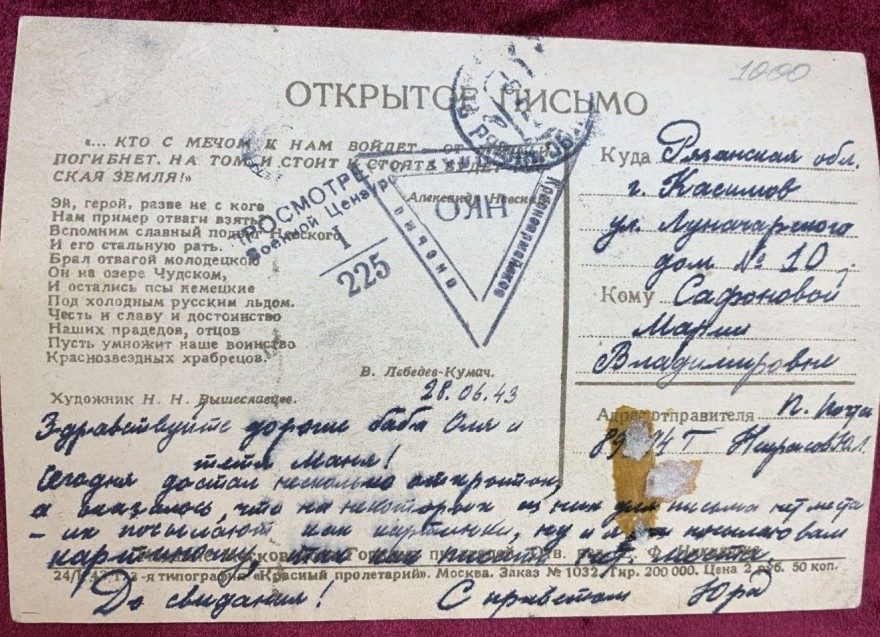 1000
ОТКРЫТОЕ ПИСЬМО
«... КТО С МЕЧОМ К НАМ ВОЙДЕТ, ОТ
ПОГИБНЕТ. НА ТОМ И СТОИТ И СТОЯТЬ БУДЕТ
СКАЯ ЗЕМЛЯ!»
Александр Невский
Эй, герой, разве не с кого
Нам пример отваги взять
Вспомним славный подвиг Невского
И его стальную рать.
Брал отвагой молодецкою
Он на озере Чудском,
И остались псы немецкие
Под холодным русским льдом.
Честь и славу и достоинство
Наших прадедов, отцов
Пусть умножит наше воинство
Краснозвездных храбрецов.
В. Лебедев-Кумач.
Художник Н. Н. Вышеславцев.
ПРОСМОТРЕНО
Военной Цензурой
1
225
НКО
Красноармейское
Куда Рязанская обл.
г. Касимов
ул. Луначарского
дом № 10
Кому Сафоновой
Марии
Владимировне
Адрес отправителя п. почта
Некрасов Ю.Л.
28.06.43
Здравствуйте дорогие баба Оля и
тетя Маня!
Сегодня достал несколько открыток,
а оказалось, что на некоторых из них для письма нет места
- их посылают как картинки, ну и я посылаю вам
картиночку, так как писать нет места.
24/I 43 г. 2-я типография «Красный пролетарий». Москва. Заказ № 1032. Тир. 200 000. Цена 2 руб. 50 коп.
До свидания! С приветом Юра